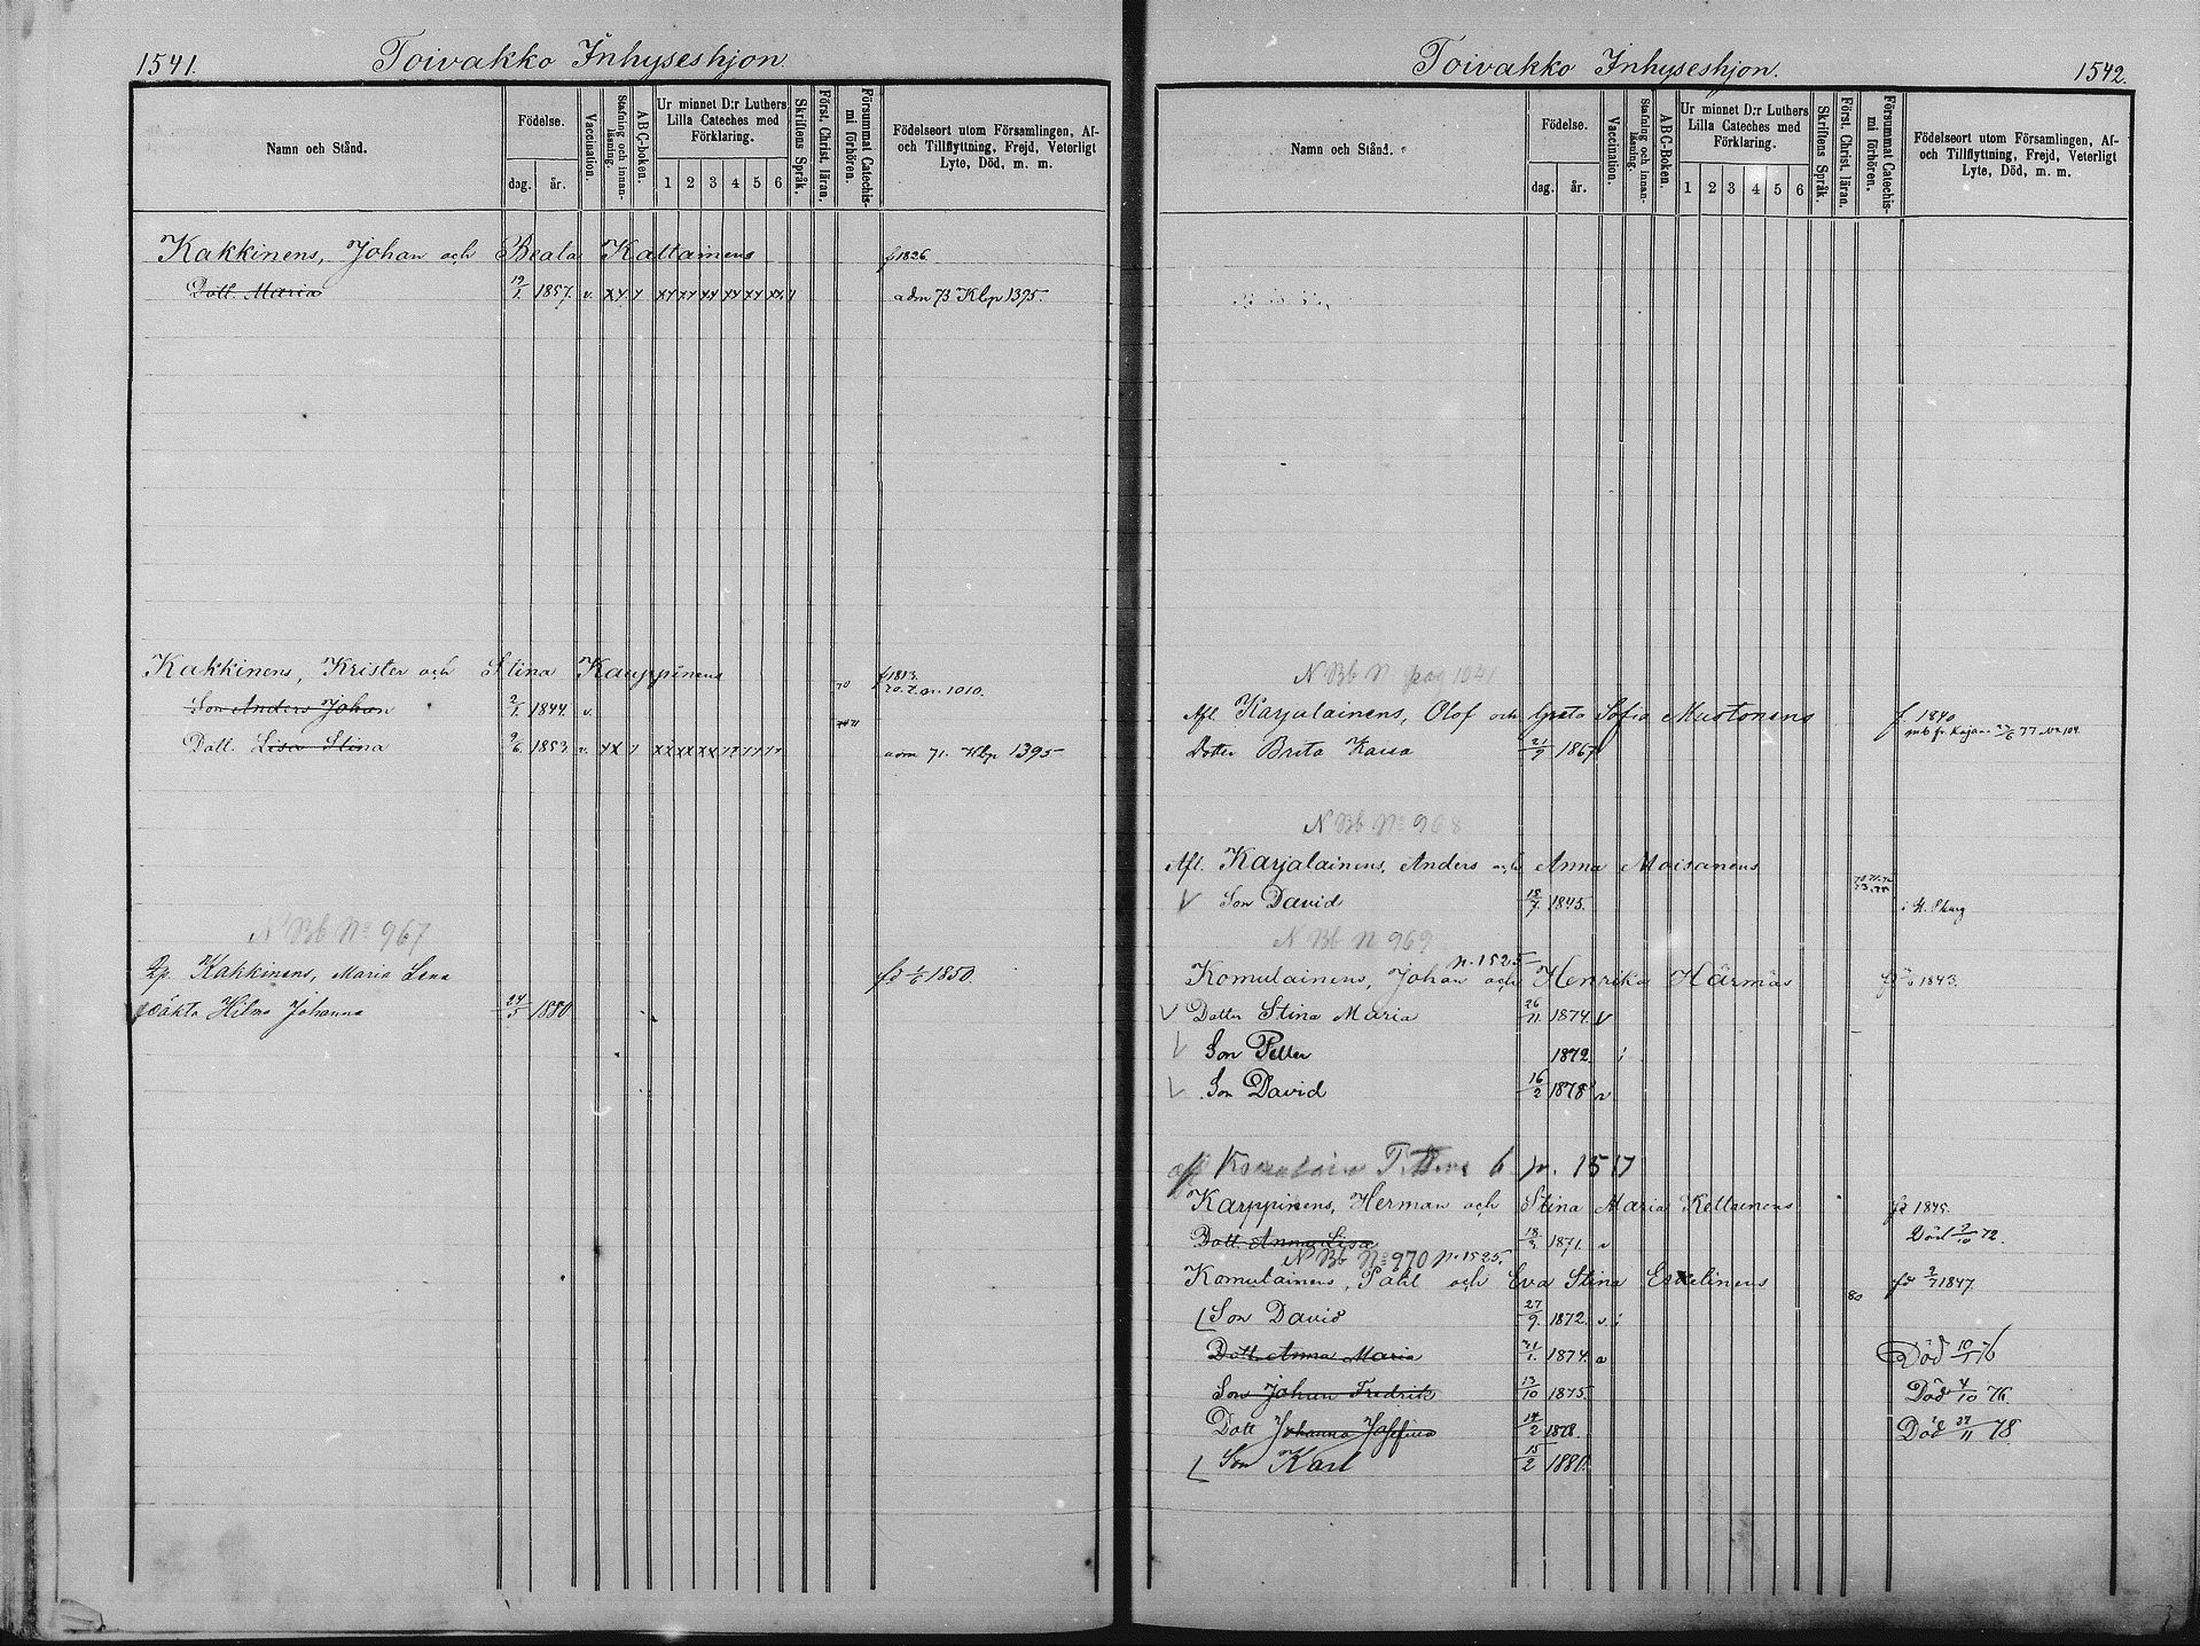 1541.
Toivakko Inhyseshjon.
Namn och Stånd.
Födelse.
dag. år.
Vaccination.
Stafning och innanläsning.
ABC-boken.
Ur minnet D:r Luthers Lilla Cateches med Förklaring.
1 2 3 4 5 6
Skriftens Språk.
Först. Christ. läran.
Försummat Catechismi förhören.
Födelseort utom Församlingen, Af- och Tillflyttning, Frejd, Veterligt Lyte, Död, m. m.
Kakkinens, Johan och Beata Kattainens f 1826
Dott. Maria 19/1. 1857. v. adm 73 Kbp 1395.
Kakkinens, Krister och Stina Karppinens 70 f 1813.
Son Anders Johan 2/1. 1844. v.
Dott. Lisa Stina 2/6. 1853 v. adm 71. Kbp 1395
N Bb No 967
Kakkinens, Maria Lena fd 1/6 1850.
oäkta Hilma Johanna 24/5 1880
Toivakko Inhyseshjon.
1542.
Namn och Stånd.
Födelse.
dag. år.
Vaccination.
Stafning och innanläsning.
ABC-Boken.
Ur minnet D:r Luthers Lilla Cateches med Förklaring.
1 2 3 4 5 6
Skriftens Språk.
Först. Christ. läran.
Försummat Catechismi förhören.
Födelseort utom Församlingen, Af- och Tillflyttning, Frejd, Veterligt Lyte, Död, m. m.
N Bb N pag 1041
Afl. Karjalainens, Olof och Greta Sofia Mustonens f. 1840
Dotter Brita Kaisa 21/9 1867
N Bb No 968
Afl. Karjalainens, Anders och Anna Moisanens
V Son David 18/7. 1845.
N Bb N 969
p. 1525
Komulainens, Johan och Henrika Härmäs 1843.
V Dotter Stina Maria 26/11. 1874. V
V Son Petter 1872
V Son David 16/2 1878 v
p. 1517
Karppinens, Herman och Stina Maria Kettunens fd 1845.
Dott. Anna Lisa 18/3. 1871. v Död 2/10 72.
N Bb No 970 p. 1525.
Komulainens, Påhl och Eva Stina Eskelinens 80 fd 2/7 1847.
Son David 27/9. 1872. v.
Dott. Anna Maria 21/1. 1874. v Död 10/1 76
Son Johan Fredrik 13/10 1875. Död 4/10 76.
Dott Johanna Josefina 14/2 1878. Död 27/11 78
Son Karl 15/2 1880.